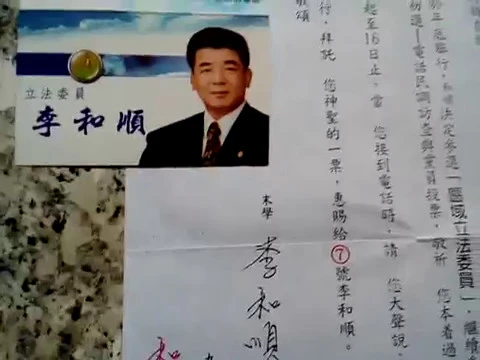 立法委員
李和順
於年底舉行，和順決定參選「區域立法委員」，繼續
初選－電話民調訪查與黨員投票，敬祈 您本着過
起至16日止，當 您接到電話時，請 您大聲說
行，拜託 您神聖的一票，惠賜給⑦號李和順。
敬頌
末學
李和順